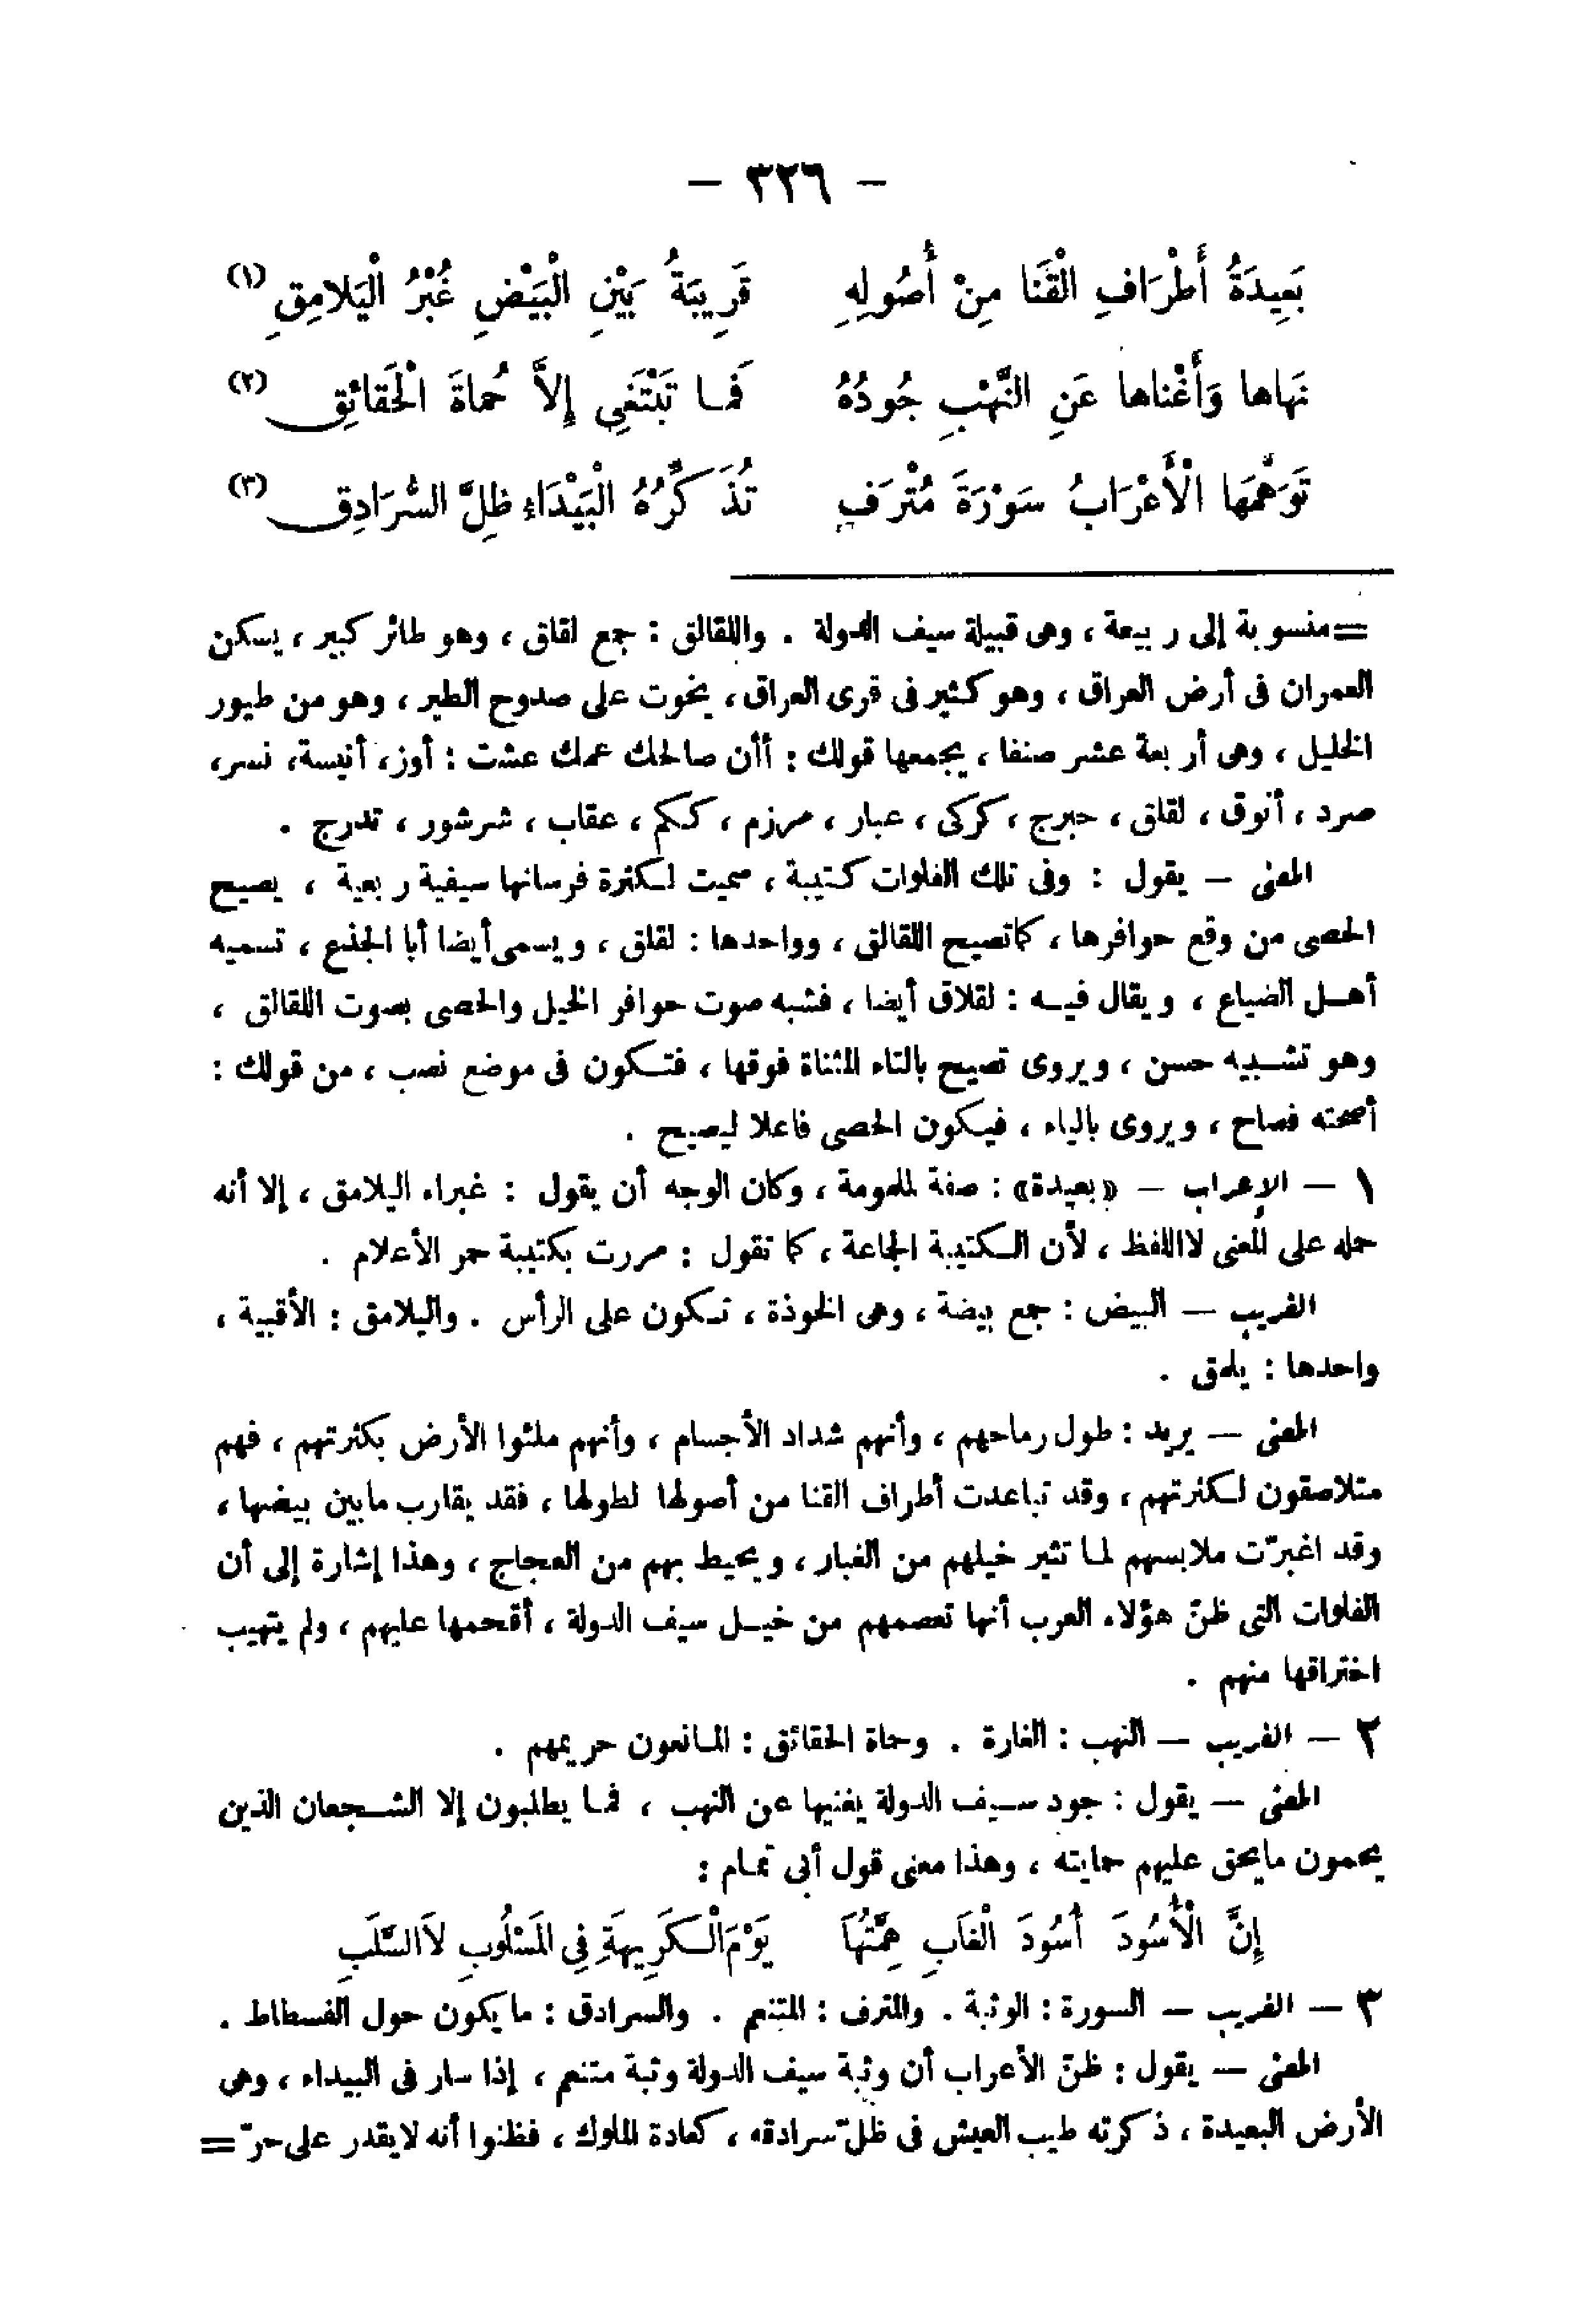 — ٣٢٦ —
بَعِيدَةُ أَطْرَافِ الْقَنَا مِنْ أُصُولِهِ قَرِيبَةُ بَيْنِ الْبَيْضِ غُبْرُ الْيَلامِقِ (١)
نَهاها وَأَغْناها عَنِ النَّهْبِ جُودُهُ فَمـا تَبْتَغِي إِلاَّ حُماةَ الْحَقائِقِ (٢)
تَوَهَّمَهَا الْأَعْرَابُ سَوْرَةَ مُتْرَفٍ تُذَكِّرُهُ الْبَيْدَاءِ ظِلَّ السُّرَادِقِ (٣)
= منسوبة إلى ربيعة ، وهى قبيلة سيف الدولة . واللقالق : جمع لقلق ، وهو طائر كبير ، يسكن
العمران فى أرض العراق ، وهو كثير فى قرى العراق ، يخوت على صدوح الطير ، وهو من طيور
الخليل ، وهى أربعة عشر صنفا ، يجمعها قولك : أأن صالحك عمك عشت : أوز، أنيسة، نسر،
صرد ، أنوق ، لقلق ، حبرج ، كركى ، عبار ، مرزم ، ككم ، عقاب ، شرشور ، تدرج .
المعنى — يقول : وفى تلك الفلوات كتيبة ، سميت لكثرة فرسانها سيفية ربعية ، يصيح
الحصى من وقع حوافرها ، كما تصيح اللقالق ، وواحدها : لقلق ، ويسمى أيضا أبا الجذع ، تسميه
أهـل الضياع ، ويقال فيـه : لقلاق أيضا ، فشبه صوت حوافر الخيل والحصى بصوت اللقالق ،
وهو تشـبيه حسن ، ويروى تصيح بالتاء المثناة فوقها ، فتـكون فى موضع نصب ، من قولك :
أصحته فصاح ، ويروى بالياء ، فيكون الحصى فاعلا ليصيح .
١ — الإعراب — «بعيدة» : صفة لملمومة ، وكان الوجه أن يقول : غبراء اليلامق ، إلا أنه
حمله على المعنى لا اللفظ ، لأن الـكتيبة الجماعة ، كما تقول : مررت بكتيبة حمر الأعلام .
الغريب — البيض : جمع بيضة ، وهى الخوذة ، تـكون على الرأس . واليلامق : الأقبية ،
واحدها : يلمق .
المعنى — يريد : طول رماحهم ، وأنهم شداد الأجسام ، وأنهم ملئوا الأرض بكثرتهم ، فهم
متلاصقون لـكثرتهم ، وقد تباعدت أطراف القنا من أصولها لطولها ، فقد يقارب مابين بيضها ،
وقد اغبرّت ملابسهم لمـا تثير خيلهم من الغبار ، ويحيط بهم من العجاج ، وهذا إشارة إلى أن
الفلوات التى ظنّ هؤلاء العرب أنها تعصمهم من خيـل سيف الدولة ، أقحمها عليهم ، ولم يتهيب
اختراقها منهم .
٢ — الغريب — النهب : الغارة . وحماة الحقائق : المـانعون حريمهم .
المعنى — يقول : جود سـيف الدولة يغنيها عن النهب ، فمـا يطلبون إلا الشـجعان الذين
يحمون مايحق عليهم حمايته ، وهذا معنى قول أبى تمـام :
إِنَّ الْأُسُودَ أُسُودَ الْغَابِ هِمَّتُهَا يَوْمَ الْـكَرِيهَةِ فِى الْمَسْلُوبِ لاَ السَّلَبِ
٣ — الغريب — السورة : الوثبة . والمترف : المتنعم . والسرادق : مايكون حول الفسطاط .
المعنى — يقول : ظنّ الأعراب أن وثبة سيف الدولة وثبة متنعم ، إذا سار فى البيداء ، وهى
الأرض البعيدة ، ذكرته طيب العيش فى ظلّ سرادقه ، كعادة الملوك ، فظنوا أنه لايقدر على حرّ =